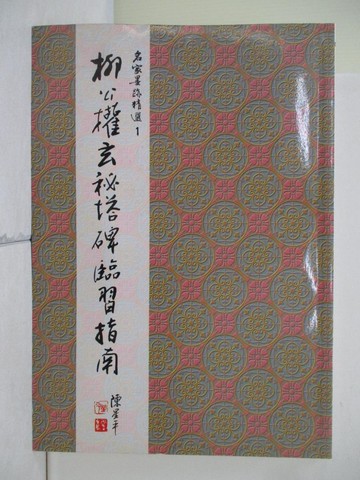 名家墨跡精選1
柳公權玄祕塔碑臨習指南
陳星平